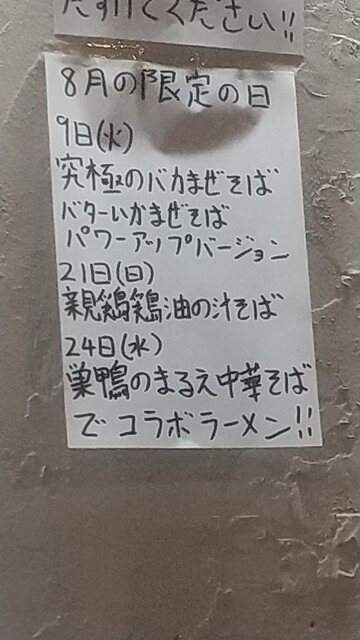 たすけてください!!
8月の限定の日
9日(火)
究極のバカまぜそば
バターいかまぜそば
パワーアップバージョン
21日(日)
親鶏鶏油の汁そば
24日(水)
巣鴨のまるえ中華そば
でコラボラーメン!!